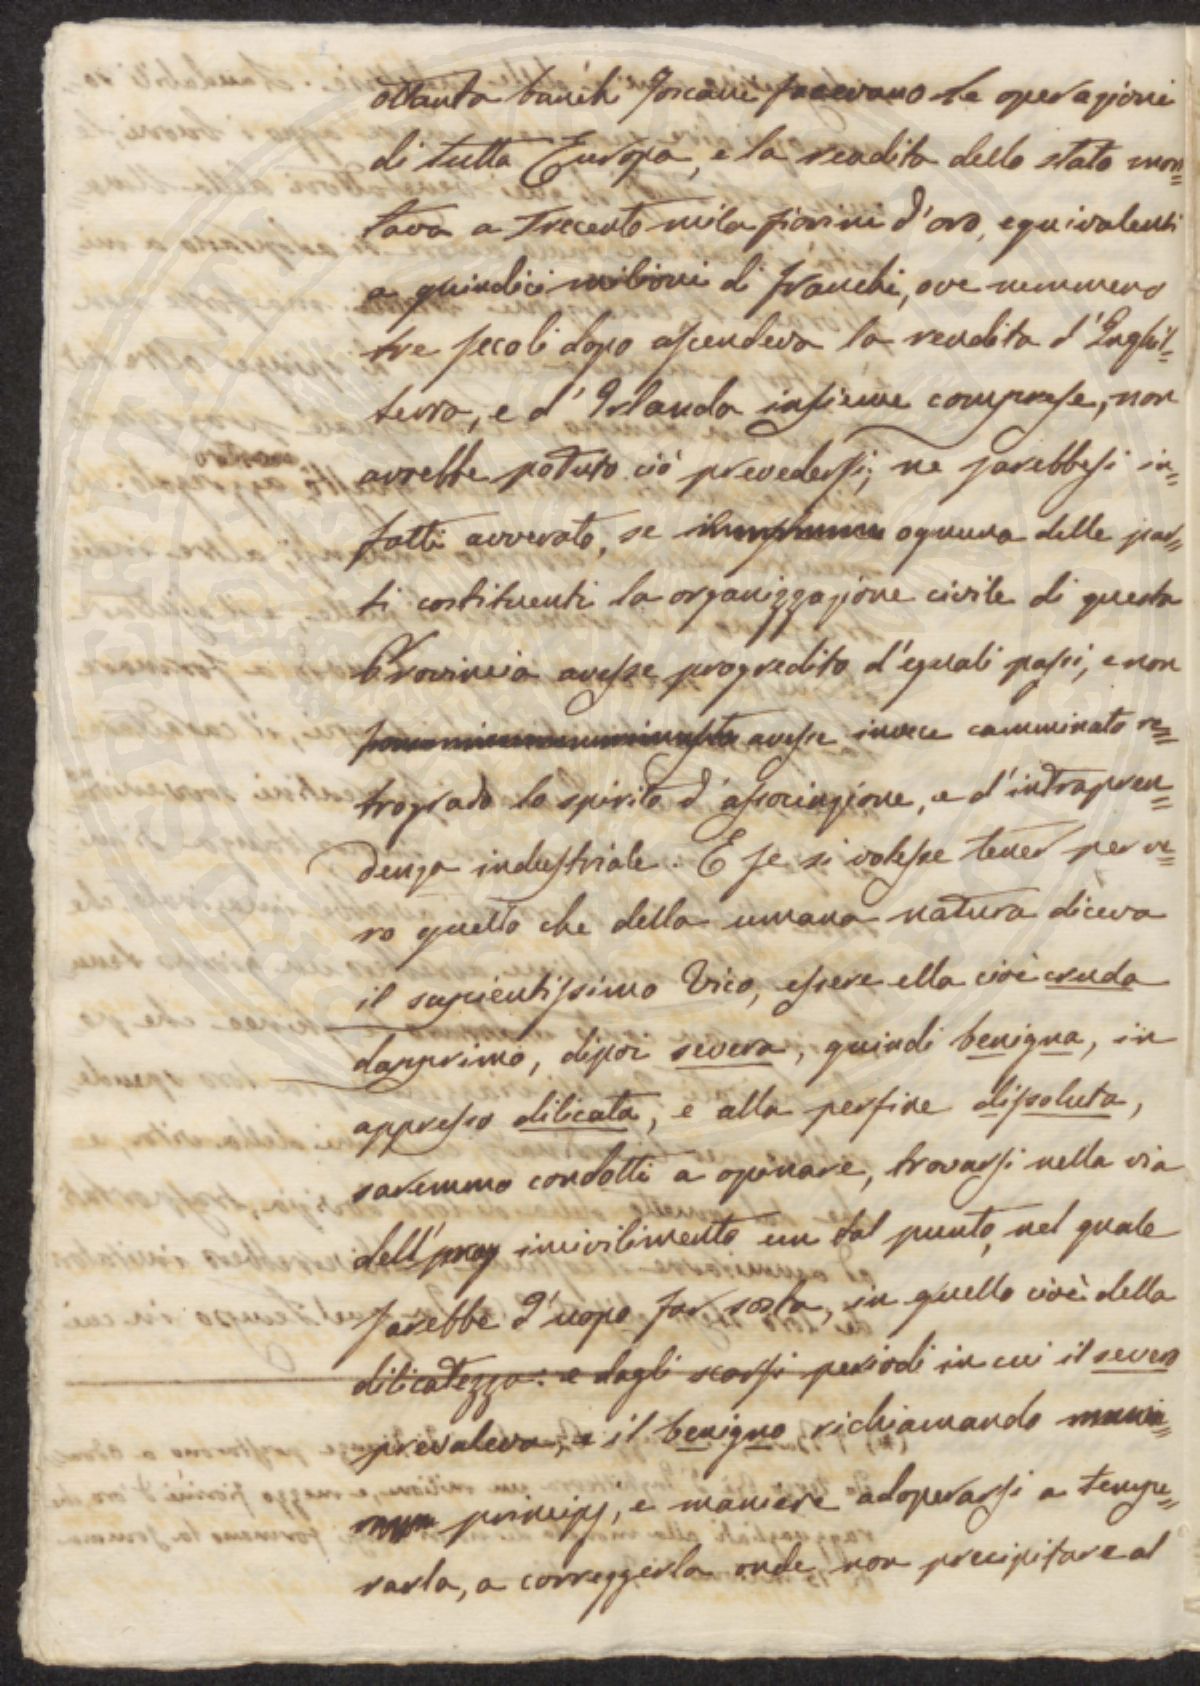 ottanta banchi Toscani facevano le operazioni
di tutta Europa, e la rendita dello stato mon=
tava a trecento mila fiorini d'oro, equivalenti
a quindici milioni di franchi, ove nemmeno
tre secoli dopo ascendeva la rendita d'Inghil=
terra, e d'Irlanda insieme comprese, non
avrebbe potuto ciò prevedersi; ne sarebbesi in=
fatti avverato, se ognuna delle par=
ti costituenti la organizzazione civile di questa
Provincia avesse progredito d'eguali passi, e non
avesse invece camminato re=
trogrado lo spirito d'associazione, e d'intrapren=
denza industriale. E se si volesse tener per ve=
ro quello che della umana natura diceva
il sapientissimo Vico, essere ella cioè cruda
dapprimo, dipoi severa, quindi benigna, in
appresso dilicata, e alla perfine dissoluta,
saremmo condotti a opinare, trovarsi nella via
dell' incivilimento un tal punto, nel quale
sarebbe d'uopo far sosta, in quello cioè della
dilicatezza: e dagli scorsi periodi in cui il severo
prevaleva, e il benigno richiamando
principj, e maniere adoperarsi a tempe=
rarla, a correggerla onde non precipitare al